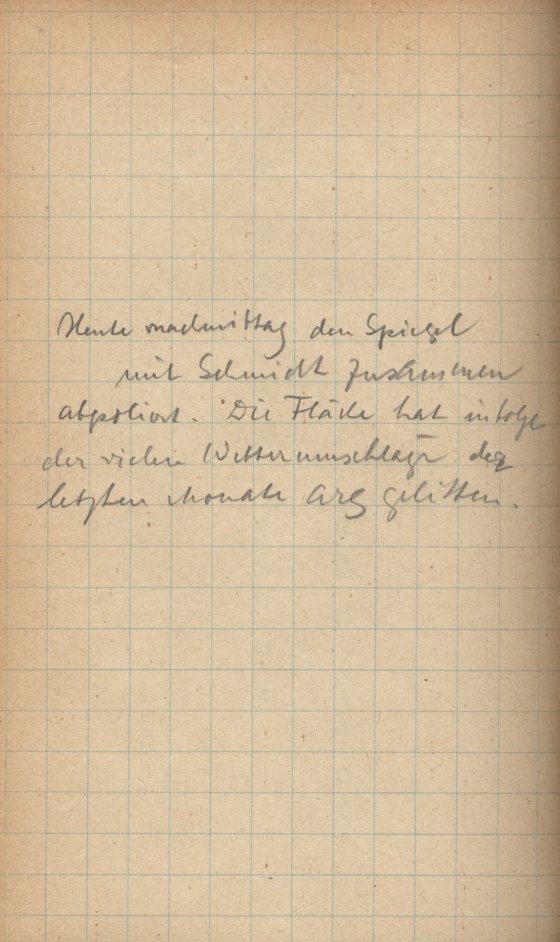 Heute nachmittag den Spiegel
mit Schmidt zusammen
abpoliert. Die Fläche hat infolge
der vielen Wetterumschläge der
letzten Monate arg gelitten.